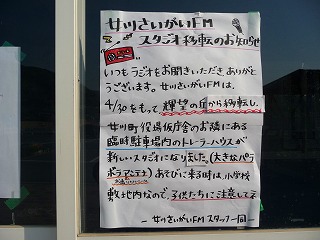 女川さいがいFM
スタジオ移転のお知らせ
いつもラジオをお聞きいただきありがと
うございます。女川さいがいFMは、
4/30をもって輝望の丘から移転し、
女川町役場仮庁舎のお隣にある
臨時駐車場内のトレーラーハウスが
新しいスタジオになりました。(大きなパラ
ボラアンテナ)あそびに来る時は小学校
敷地内なので、子供たちに注意してネ
－女川さいがいFMスタッフ一同－